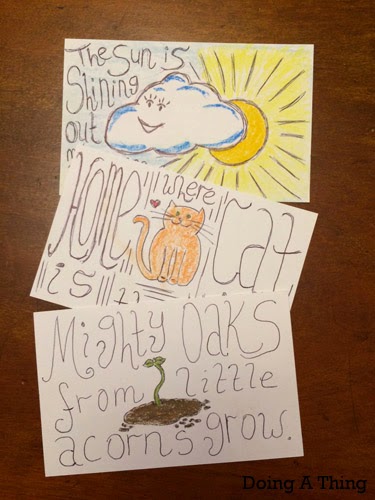 The Sun is
Shining
out
Home where
Cat
is
Mighty Oaks
from little
acorns grow.
Doing A Thing